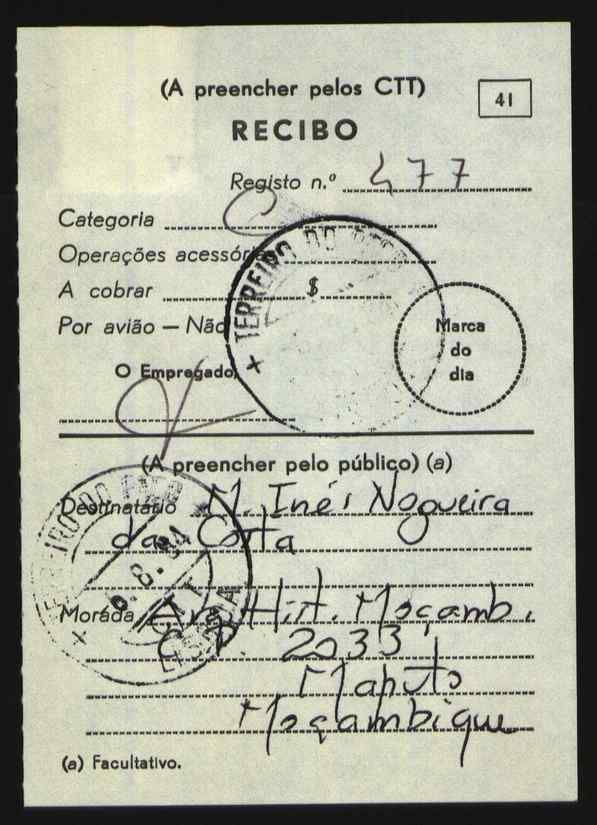 (A preencher pelos CTT)
41
RECIBO
Registo n.º 477
Categoria
Operações acessóri
A cobrar $
Por avião — Não
+ TERREIRO DO
Marca
do
dia
O Empregado,
(A preencher pelo público) (a)
Destinatário M. Inês Nogueira
da Costa
TERREIRO DO PAÇO
8.94
CTT
Morada Arq. Hist. Moçamb.
C.P. 2033
Maputo
Moçambique
(a) Facultativo.